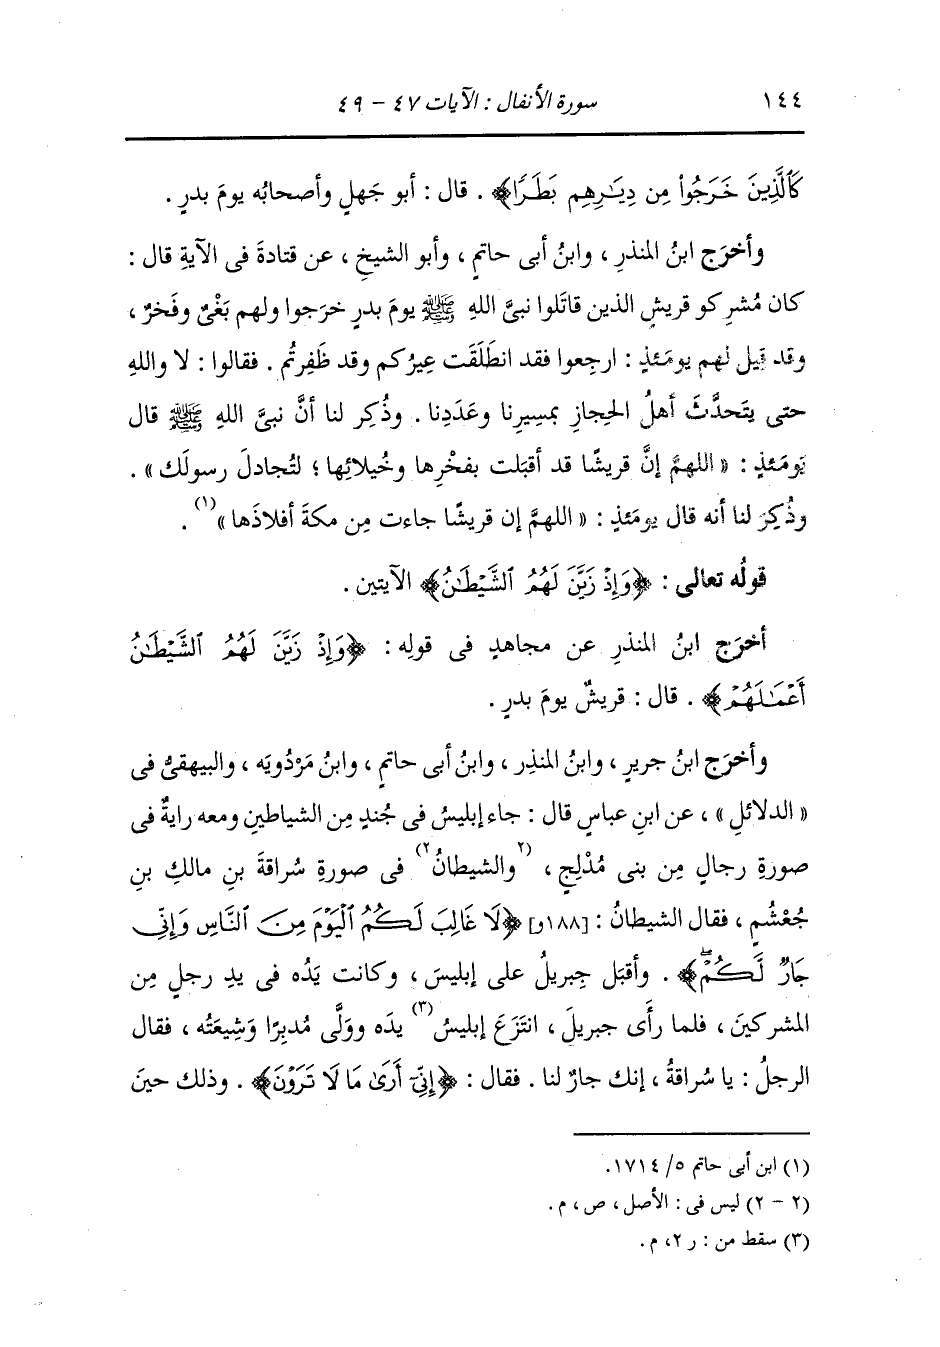 ١٤٤ سورة الأنفال : الآيات ٤٧ - ٤٩
كَٱلَّذِينَ خَرَجُوا۟ مِن دِيَـٰرِهِم بَطَرًا﴾ . قال : أبو جَهلٍ وأصحابُه يومَ بدرٍ .
وأخرَج ابنُ المنذرِ ، وابنُ أبى حاتمٍ ، وأبو الشيخِ ، عن قتادةَ فى الآيةِ قال :
كان مُشرِكو قريشٍ الذين قاتَلوا نبىَّ اللهِ ﷺ يومَ بدرٍ خرَجوا ولهم بَغْىٌ وفَخرٌ ،
وقد قيل لهم يومَئذٍ : ارجِعوا فقد انطَلَقَت عِيرُكم وقد ظَفِرتُم . فقالوا : لا واللهِ
حتى يتَحدَّثَ أهلُ الحِجازِ بمسيرِنا وعَدَدِنا . وذُكِر لنا أنَّ نبىَّ اللهِ ﷺ قال
يَومَئذٍ : « اللهمَّ إنَّ قريشًا قد أقبَلت بفخْرِها وخُيلائِها ؛ لتُجادلَ رسولَك » .
وذُكِرَ لنا أنه قال يومَئذٍ : « اللهمَّ إن قريشًا جاءت مِن مكةَ أفلاذَها »(١) .
قولُه تعالى : ﴿وَإِذْ زَيَّنَ لَهُمُ ٱلشَّيْطَـٰنُ﴾ الآيتين .
أخرَج ابنُ المنذرِ عن مجاهدٍ فى قولِه : ﴿وَإِذْ زَيَّنَ لَهُمُ ٱلشَّيْطَـٰنُ
أَعْمَـٰلَهُمْ﴾ . قال : قريشٌ يومَ بدرٍ .
وأخرَج ابنُ جريرٍ ، وابنُ المنذِر ، وابنُ أبى حاتمٍ ، وابنُ مَرْدُويَه ، والبيهقىُّ فى
« الدلائلِ » ، عن ابنِ عباسٍ قال : جاء إبليسُ فى جُندٍ مِن الشياطينِ ومعه رايةٌ فى
صورةِ رجالٍ مِن بنى مُدْلِجٍ ، (٢)والشيطانُ(٢) فى صورةِ سُراقةَ بنِ مالكِ بنِ
جُعْشُمٍ ، فقال الشيطانُ : [١٨٨و] ﴿لَا غَالِبَ لَكُمُ ٱلْيَوْمَ مِنَ ٱلنَّاسِ وَإِنِّى
جَارٌ لَّكُمْۖ﴾ . وأقبَل جِبريلُ على إبليسَ ، وكانت يَدُه فى يدِ رجلٍ مِن
المشركينَ ، فلما رأَى جبريلَ ، انتَزَعَ إبليسُ(٣) يدَه وولَّى مُدبِرًا وَشِيعَتُه ، فقال
الرجلُ : يا سُراقةُ ، إنك جارٌ لنا . فقال : ﴿إِنِّىٓ أَرَىٰ مَا لَا تَرَوْنَ﴾ . وذلك حينَ
(١) ابن أبى حاتم ٥/ ١٧١٤.
(٢ - ٢) ليس فى : الأصل ، ص ، م .
(٣) سقط من : ر ٢، م .